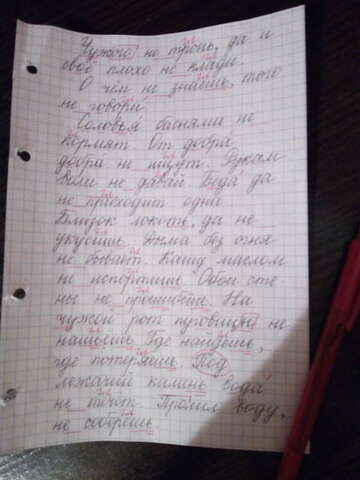 Чужого не тронь, да и
своё плохо не клади.
О чем не знаешь, того
не говори.
Соловья баснями не
кормят. От добра
добра не ищут. Рукам
воли не давай Беда да
не приходит одна
Близок локоть, да не
укусишь. Дыма без огня
не бывает. Кашу маслом
не испортишь Обои сте
ны не прошибёшь. На
чужой рот пуговицы не
нашьёшь Где найдёшь,
где потеряешь. Под
лежачий камень вода
не течёт. Пролил воду,
не соберёшь.